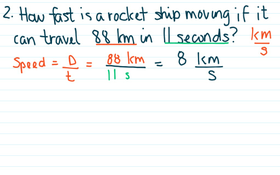 2. How fast is a rocket ship moving if it
can travel 88 km in 11 seconds? km/s
Speed = D/t = 88 km/11 s = 8 km/s